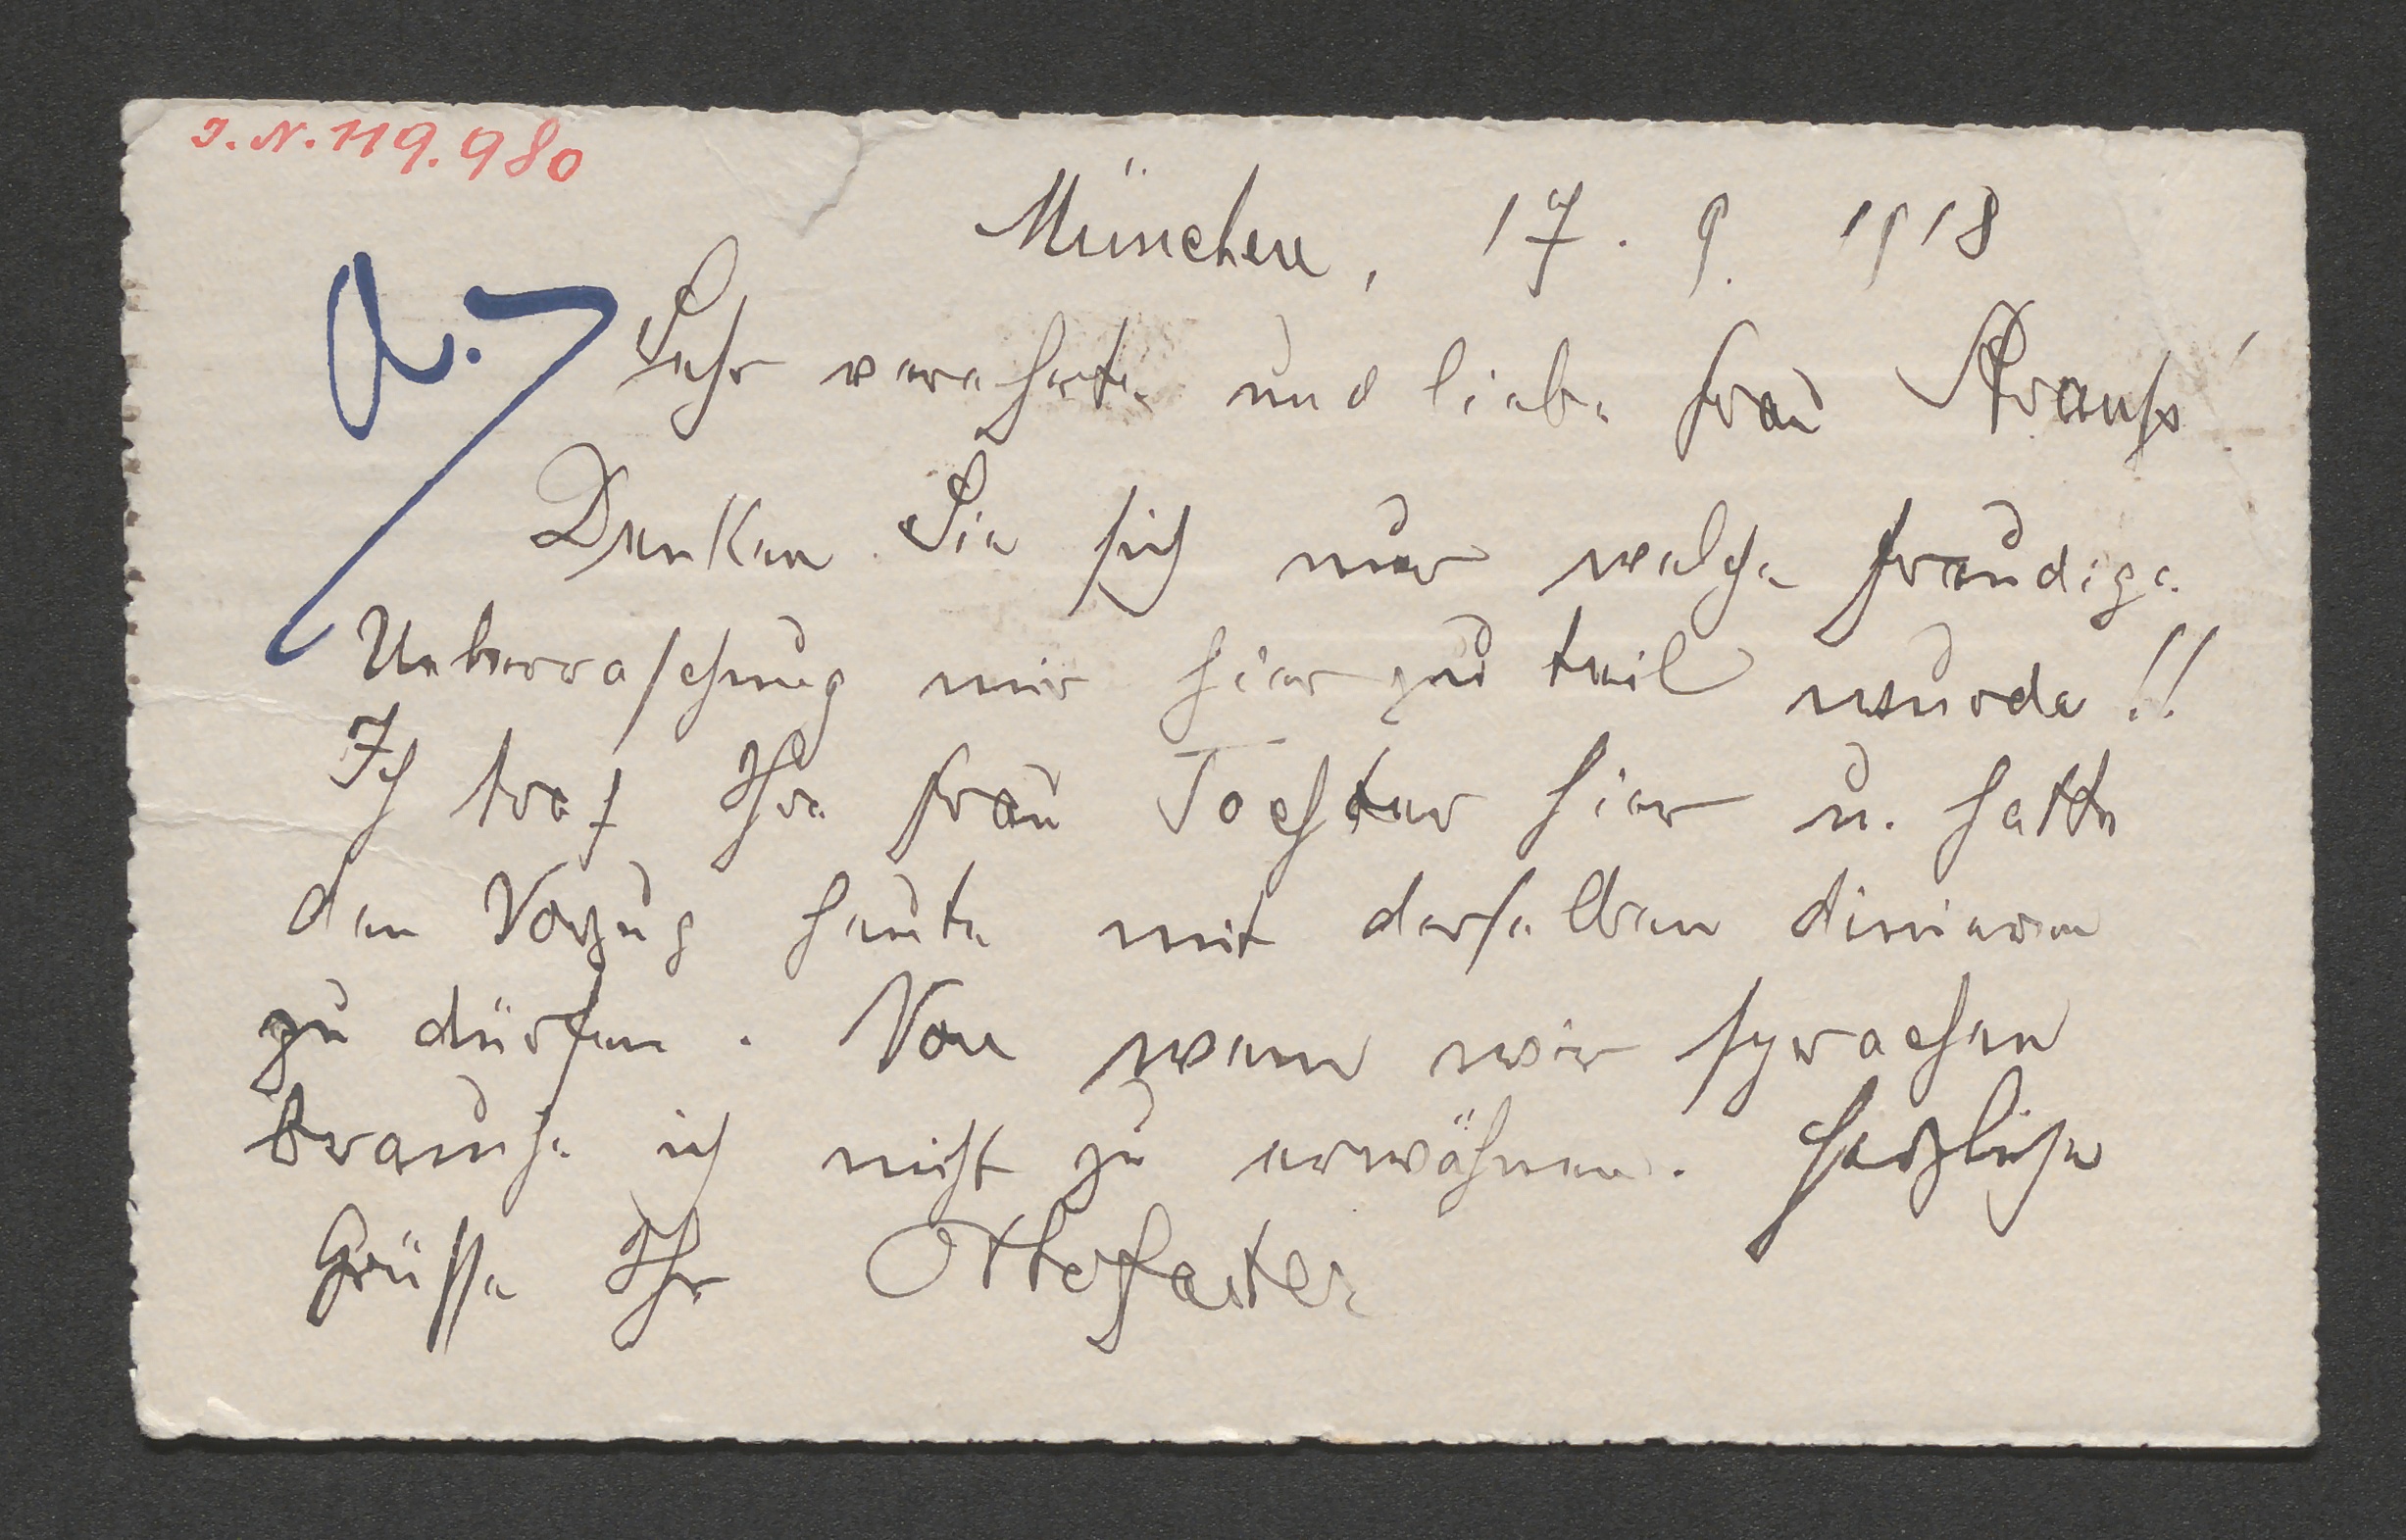 I. N. 119.980
München, 17. 9. 1918
A.
Sehr verehrte und liebe Frau Strauß!
Denken Sie sich nur welche freudige
Ueberraschung mir hier zu teil wurde!!
Ich traf Ihre Frau Tochter hier u. hatte
den Vorzug heute mit derselben dinieren
zu dürfen. Von wem wir sprachen
brauche ich nicht zu erwähnen. Herzliche
Grüße Ihr